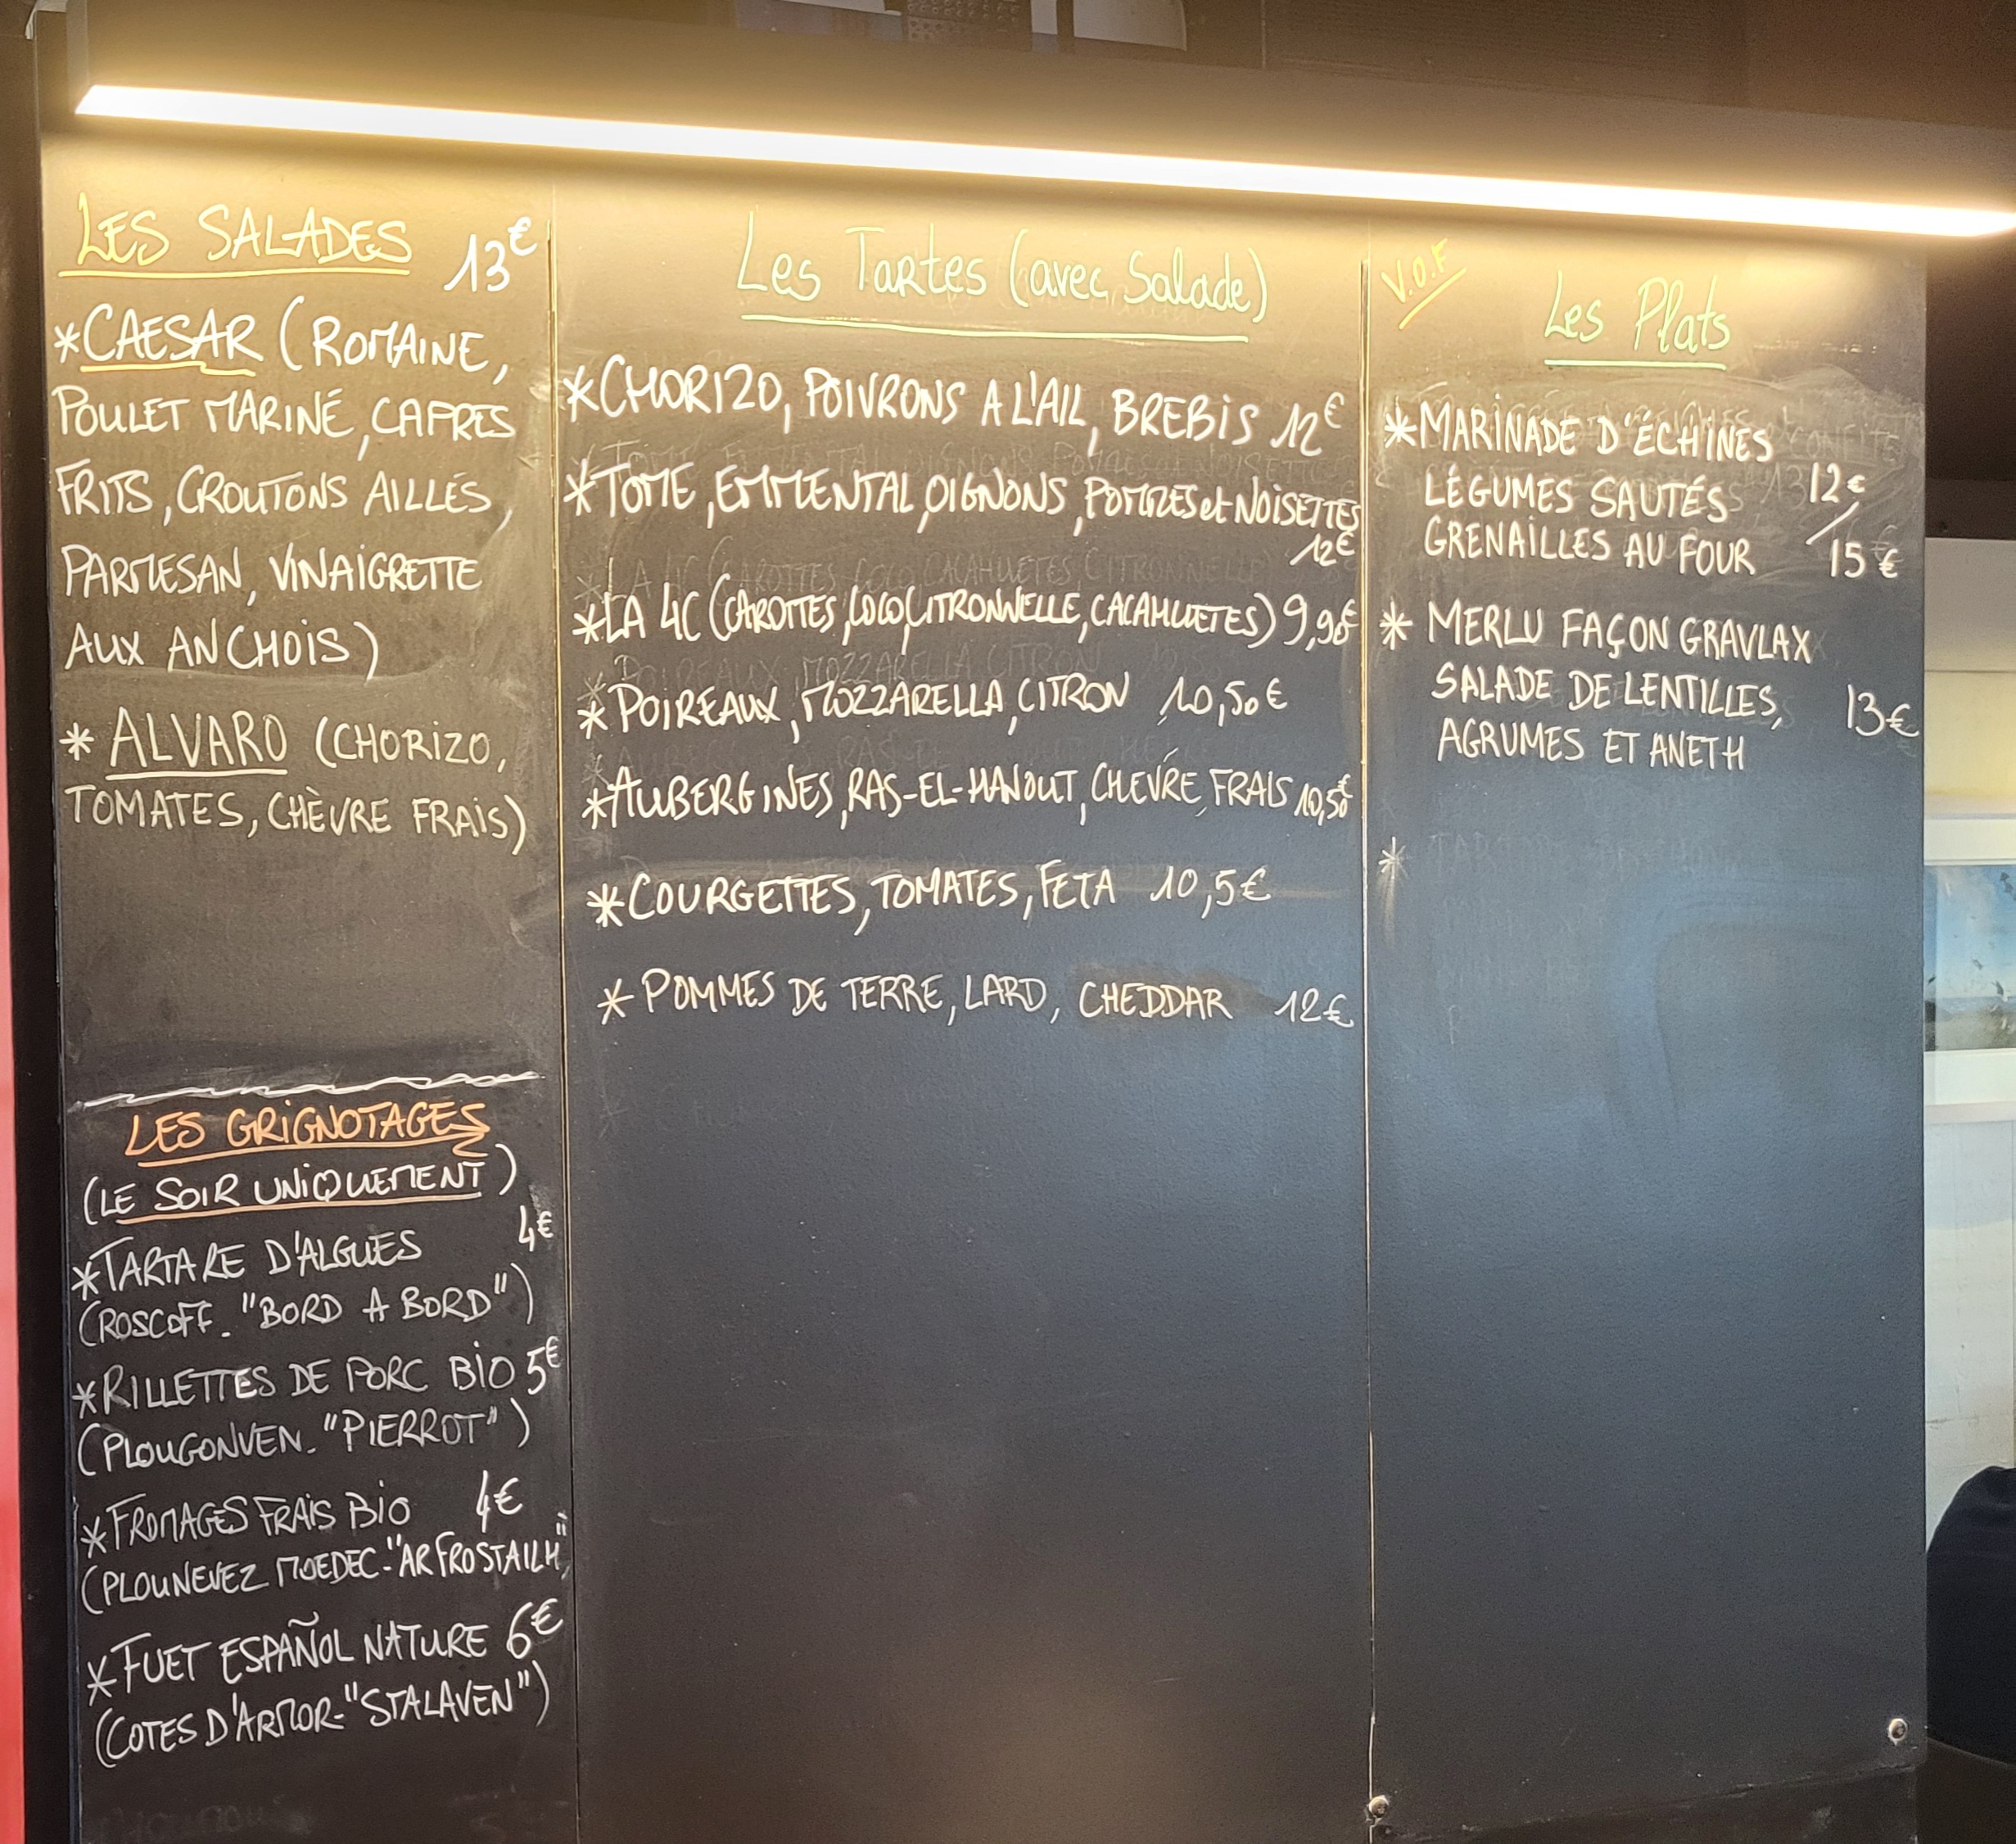 LES SALADES 13€
*CAESAR (ROMAINE,
POULET MARINÉ, CAPRES
FRITS, CROUTONS AILLÉS,
PARMESAN, VINAIGRETTE
AUX ANCHOIS)
* ALVARO (CHORIZO,
TOMATES, CHÈVRE FRAIS)
LES GRIGNOTAGES
(LE SOIR UNIQUEMENT)
*TARTARE D'ALGUES 4€
(ROSCOFF_ "BORD A BORD")
*RILLETTES DE PORC BIO 5€
(PLOUGONVEN_ "PIERROT")
*FROMAGES FRAIS BIO 4€
(PLOUNEVEZ MOEDEC-"AR FROSTAILH"
*FUET ESPAÑOL NATURE 6€
(COTES D'ARMOR-"STALAVEN")
Les Tartes (avec Salade)
*CHORIZO, POIVRONS A L'AIL, BREBIS 12€
*TOME, EMMENTAL, OIGNONS, POMMES et NOISETTES
12€
*LA 4C (CAROTTES, COCO, CITRONNELLE, CACAHUETES) 9,90€
*POIREAUX, MOZZARELLA, CITRON 10,50€
*AUBERGINES, RAS-EL-HANOUT, CHEVRE FRAIS 10,50€
*COURGETTES, TOMATES, FETA 10,5€
* POMMES DE TERRE, LARD, CHEDDAR 12€
V.O.F
Les Plats
*MARINADE D'ÉCHINES
LÉGUMES SAUTÉS 12€/
GRENAILLES AU FOUR 15€
* MERLU FAÇON GRAVLAX
SALADE DE LENTILLES, 13€
AGRUMES ET ANETH
*